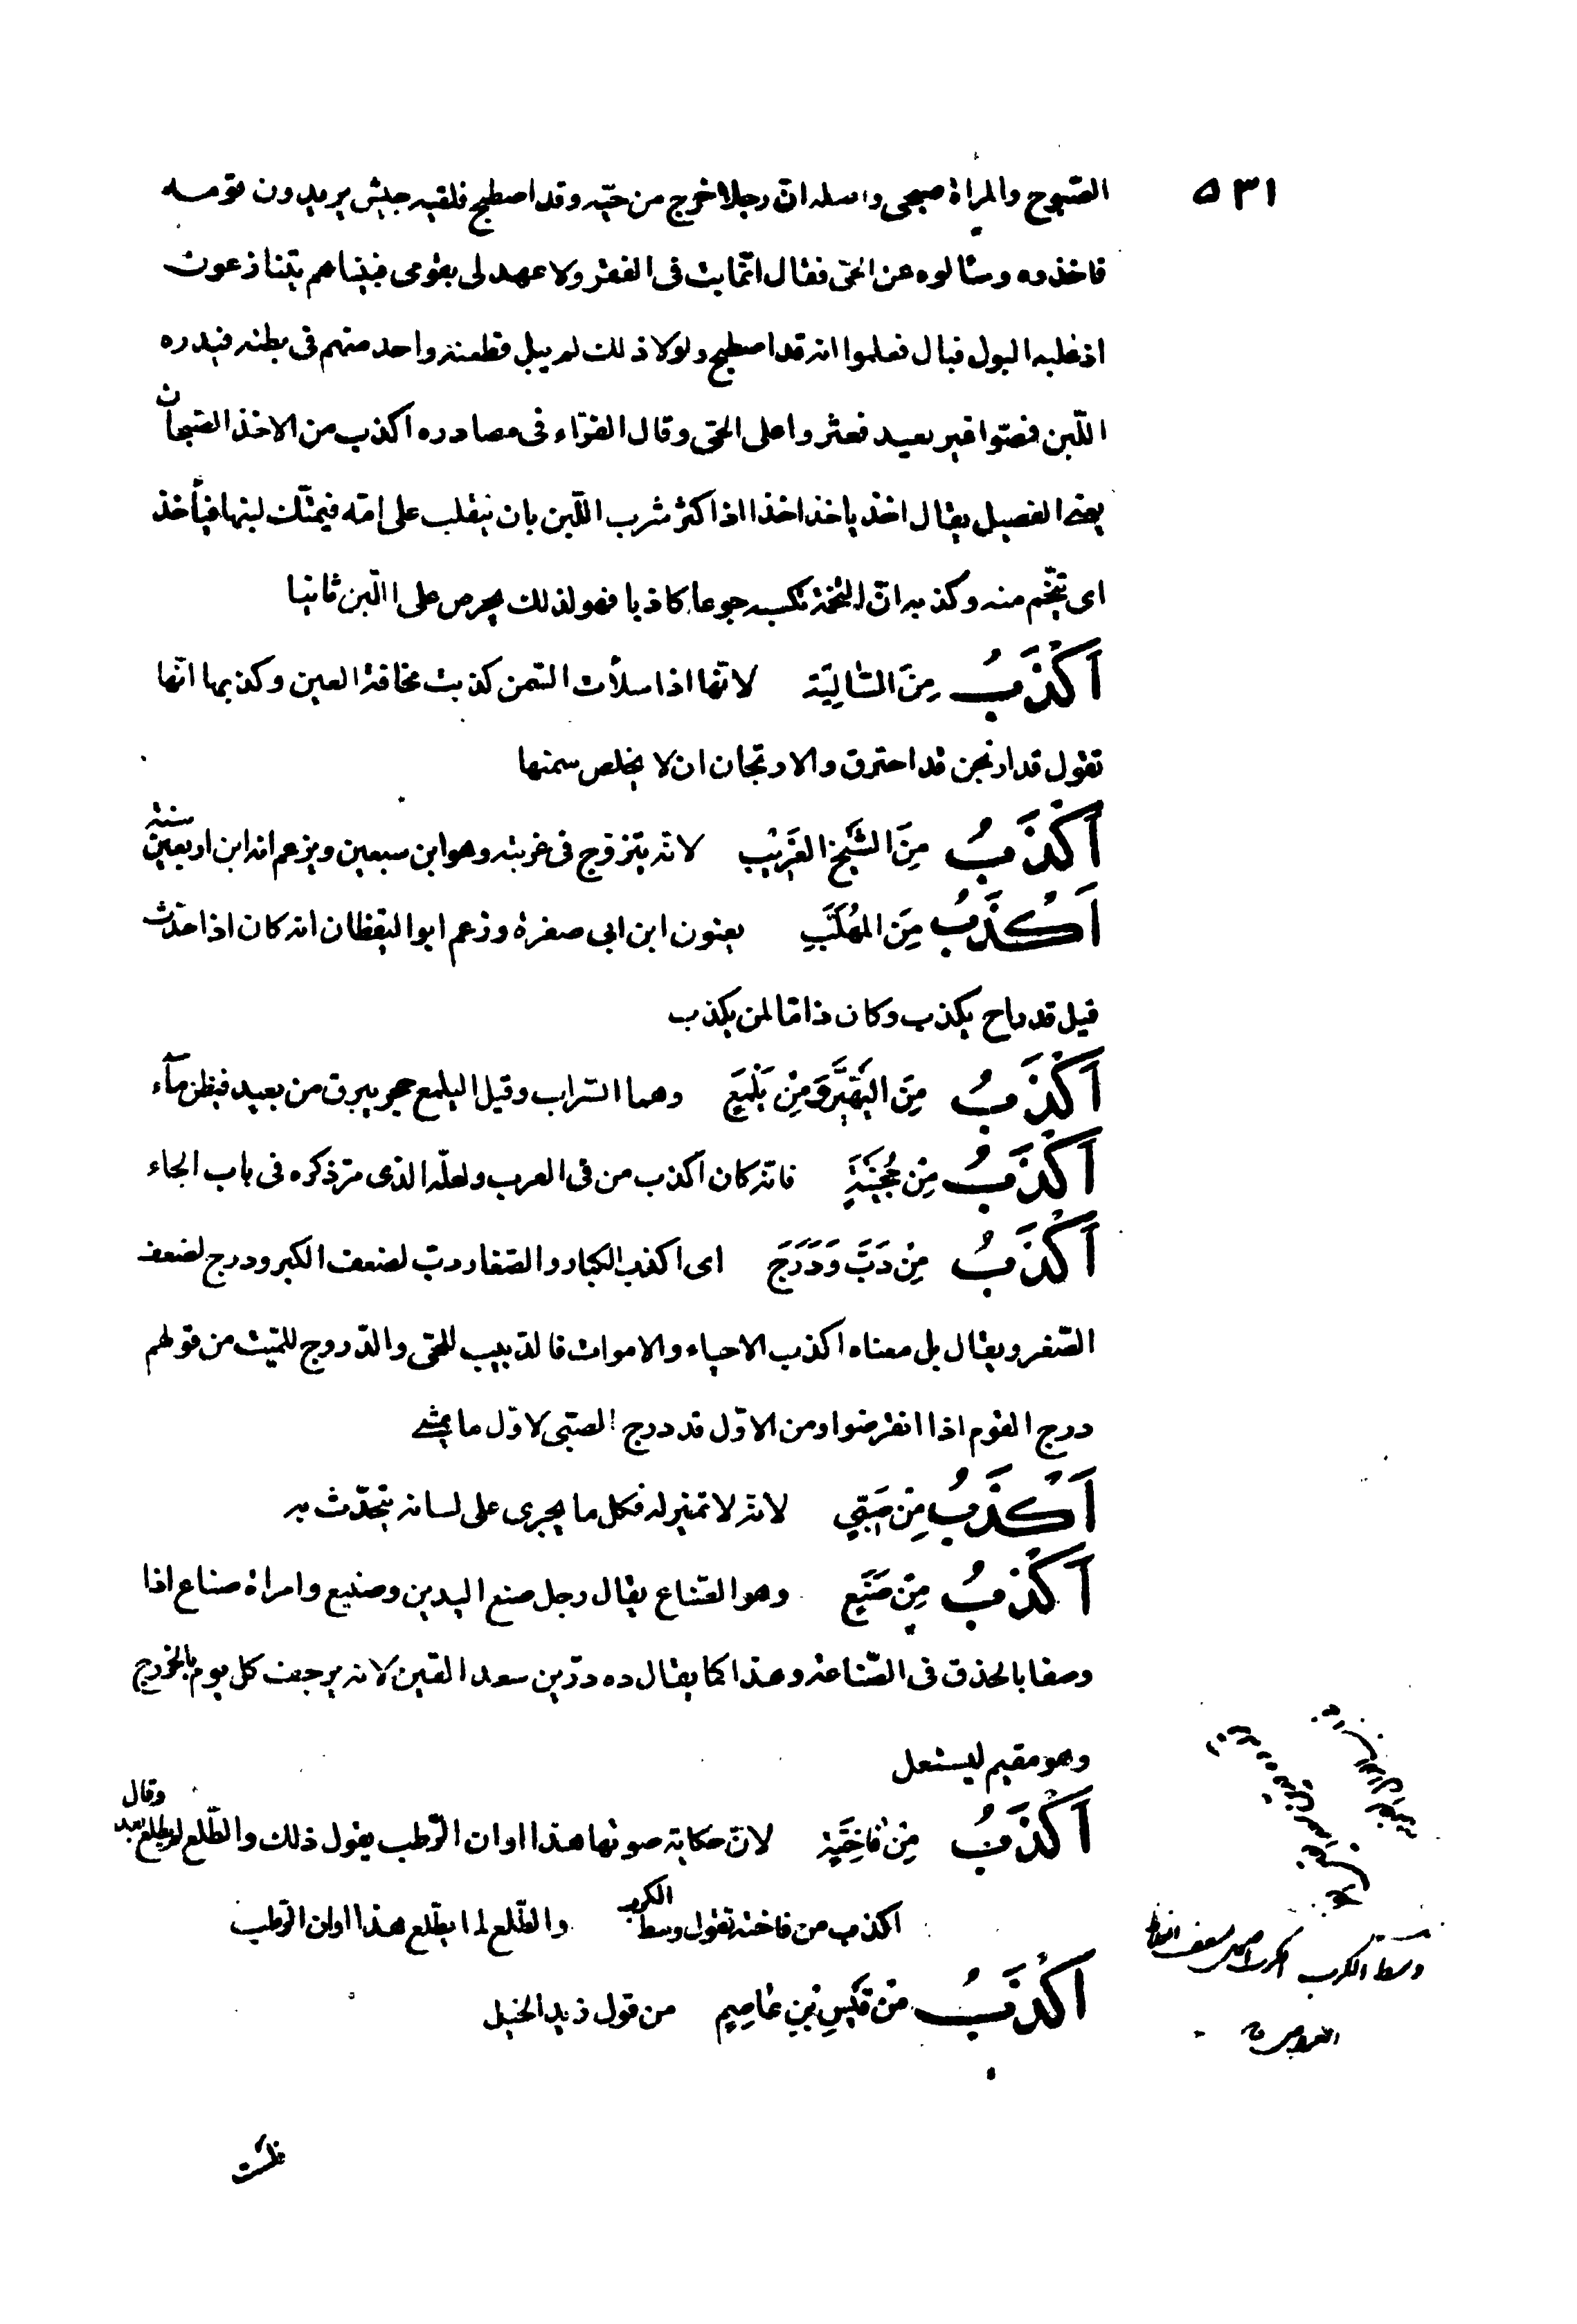 ٥٣١
الصّبوح والمراة صبحى واصله انّ رجلا خرج من حيّه وقد اصطبح فلقيه جيش يريدون قومه
فاخذوه وسالوه عن الحىّ فقال انّما بتّ فى القفر ولا عهد لى بقومى فبيناهم يتنازعون
اذ غلبه البول فبال فعلموا انه قد اصطبح ولولا ذلك لم يبل فطعنه واحد منهم فى بطنه فبدره
اللّبن فمضوا غير بعيد فعثروا على الحىّ وقال الفرّاء فى مصادره اكذب من الاخذ الصّبحان
يعنى الفصيل يقال اخذ ياخذ اخذا اذا اكثر شرب اللّبن بان ينفلت على امّه فيمتكّ لبنها فيأخذ
اى يتّخم منه وكذبه انّ التّخمة تكسبه جوعا كاذبا فهو لذلك يحرص على اللّبن ثانيا
اَكْذَبُ مِنَ السّالِيَة لانّها اذا سلأت السّمن كذبت مخافة العين وكذبها انّها
تقول قد ارتجن قد احترق والارتجان ان لا يخلص سمنها
اَكْذَبُ مِنَ الشَّيخِ الغَريْبِ لانّه يتزوّج فى غربته وهو ابن سبعين ويزعم انه ابن اربعين سنة
اَكْذَبُ مِنَ المُهَلَّبِ يعنون ابن ابى صفرة وزعم ابو اليقظان انه كان اذا حدّث
قيل قد راح يكذب وكان ذامّا لمن يكذب
اَكْذَبُ مِنَ اليَهْيَرِّ وَمِنْ يَلْمَعٍ وهما السّراب وقيل اليلمع حجر يبرق من بعيد فيظن مآء
اَكْذَبُ مِنْ جُحَيْنَةٍ فانّه كان اكذب من فى العرب ولعلّه الذى مرّ ذكره فى باب الحاء
اَكْذَبُ مِنْ دَبَّ وَدَرَجَ اى اكذب الكبار والصّغار دبّ لضعف الكبر ودرج لضعف
الصّغر ويقال بل معناه اكذب الاحياء والاموات فالدّبيب للحىّ والدّروج للميّت من قولهم
درج القوم اذا انقرضوا ومن الاوّل قد درج الصبىّ لاوّل ما يمشى
اَكْذَبُ مِنْ صَبِىٍّ لانّه لا تميز له فكل ما يجرى على لسانه يتحدّث به
اَكْذَبُ مِنْ صَنَعٍ وهو الصّناع يقال رجل صنع اليدين وصنيع وامراة صناع اذا
وصفا بالحذق فى الصّناعة وهذا كما يقال ده درّين سعد القين لانه يرجف كل يوم بالخروج
وهو مقيم ليستعمل
اَكْذَبُ مِنْ فاخِتَةٍ لانّ حكاية صوتها هذا اوان الرّطب يقول ذلك والطّلع لم يطلع بعد وقال
اكذب من فاخته تقول وسط الكرب والطّلع لما يطّلع هذا اوان الرّطب
اَكْذَبُ مِنْ قَيْسِ بْنِ عاصِمٍ من قول زيد الخيل
وسط الكرب